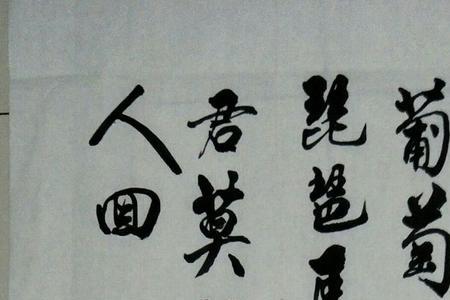 葡萄
琵琶
君莫
人回